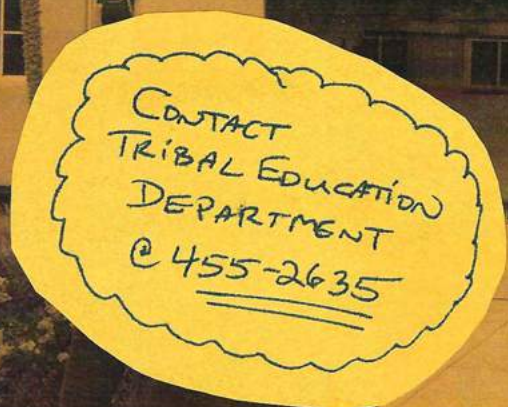 CONTACT
TRiBAL EDUCATiON
DEPARTMENT
@ 455-2635